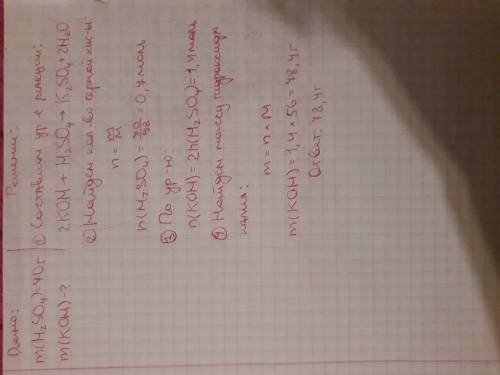 Дано:
m(H₂SO₄)=70г
m(KOH)-?
Решение:
① Составим ур-е реакции:
2KOH + H₂SO₄ → K₂SO₄+2H₂O
② Найдем кол-во серной кис-ы:
n = m/M
n(H₂SO₄) = 70/98 = 0,7 моль
③ По ур-ю:
n(KOH) = 2n(H₂SO₄)=1,4 моль
④ Найдем массу гидроксида
калия:
m = n × M
m(KOH) = 1,4 × 56 = 78,4 г
Ответ: 78,4г